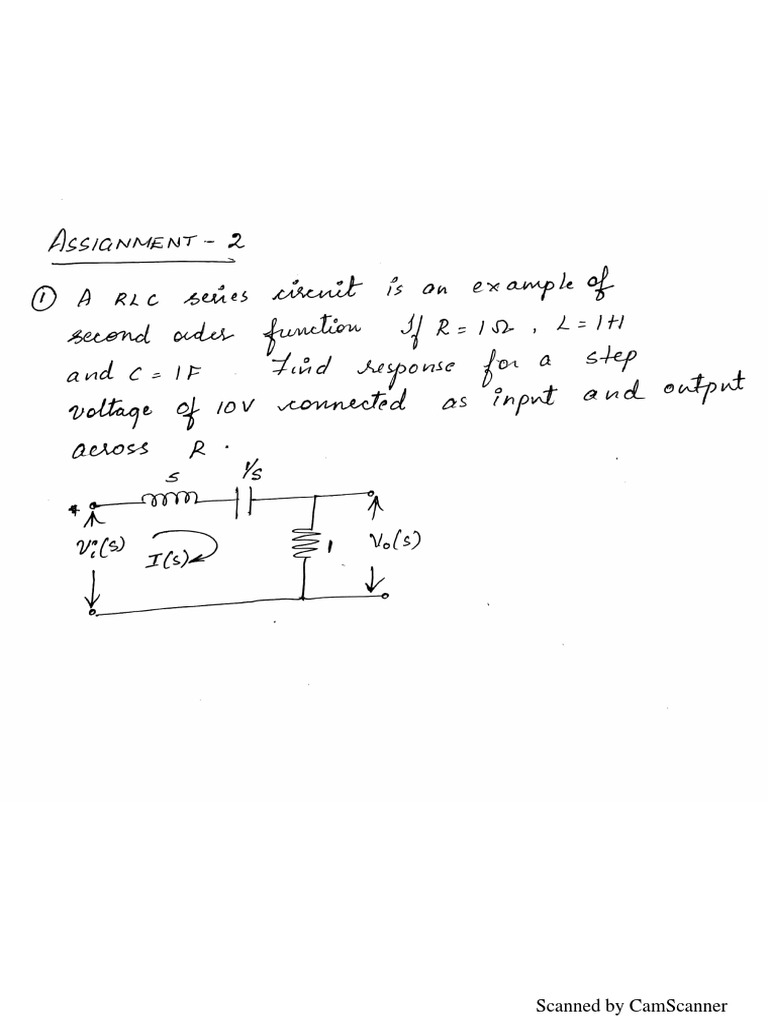 ASSIGNMENT - 2
① A RLC series circuit is an example of
second order function If R = 1Ω, L = 1H
and C = 1F. Find response for a step
voltage of 10V connected as input and output
across R.
s 1/s
+
Vi(s) I(s) 1 Vo(s)
Scanned by CamScanner